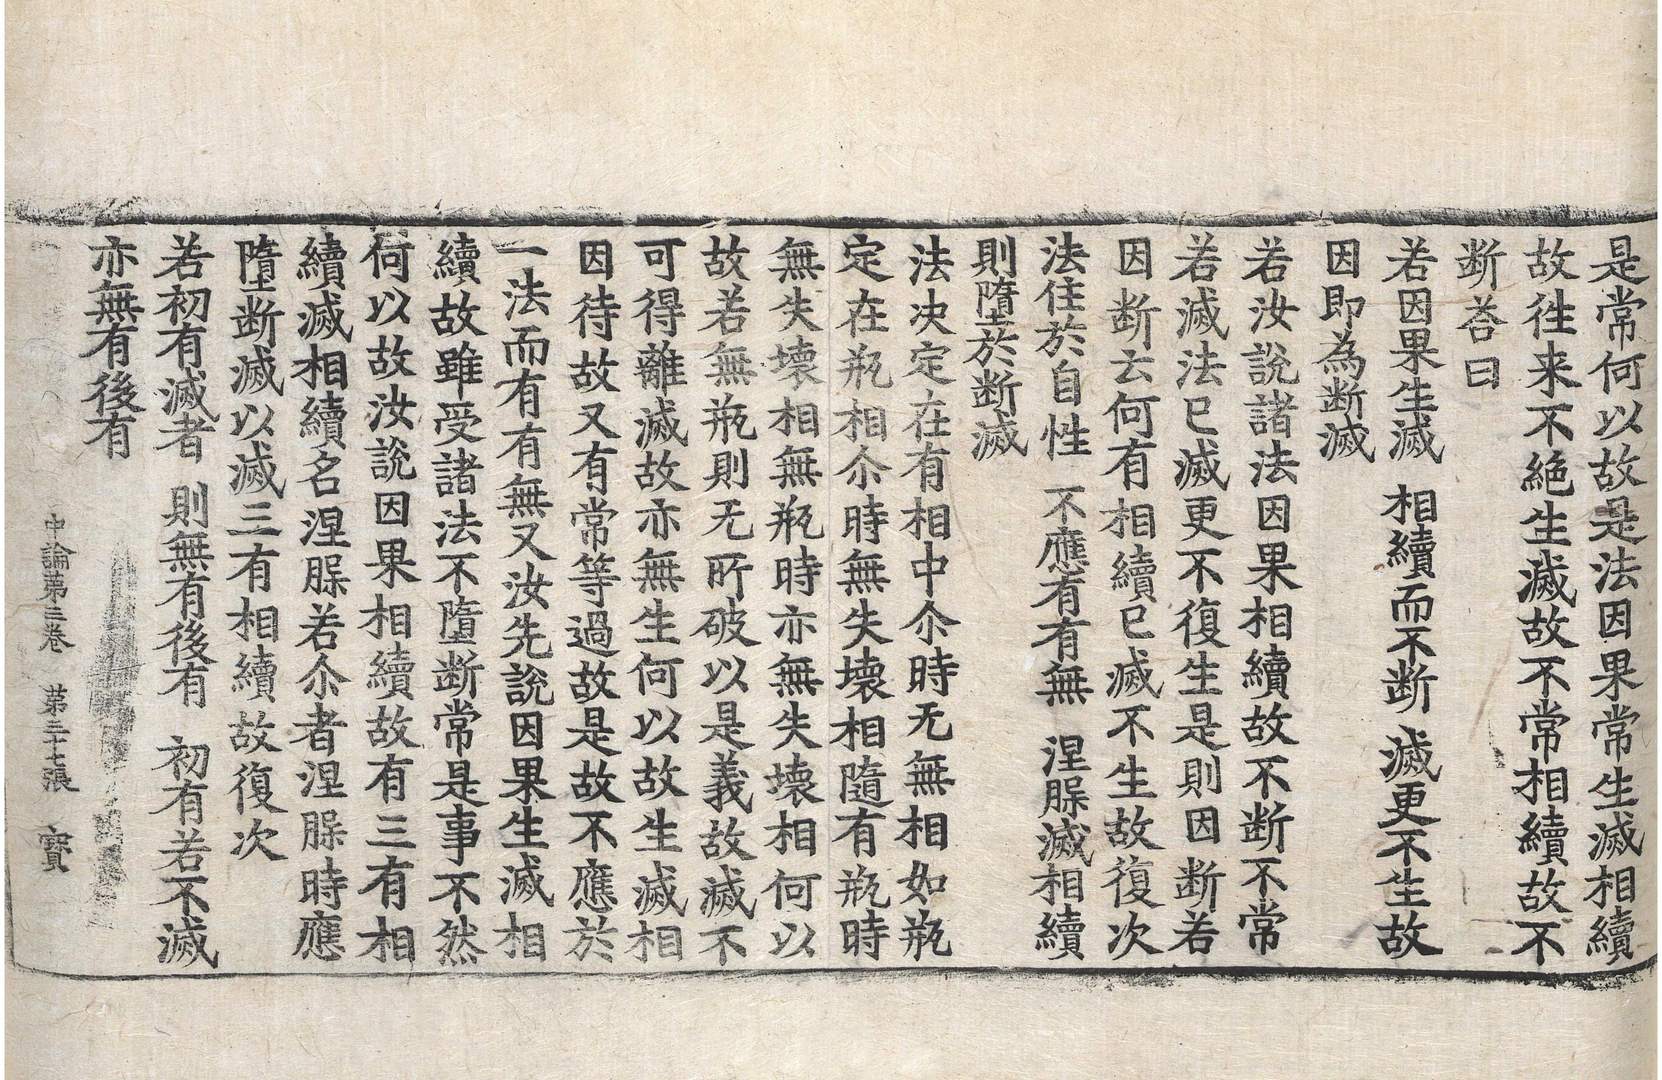 是常何以故是法因果常生滅相續
故徃来不絶生滅故不常相續故不
断荅曰
若因果生滅　相續而不断　滅更不生故
因即為断滅
若汝說諸法因果相續故不断不常
若滅法已滅更不復生是則因断若
因断云何有相續已滅不生故復次
法住於自性　不應有有無　涅脲滅相續
則墮於断滅
法决定在有相中尒時无無相如瓶
定在瓶相尒時無失壊相隨有瓶時
無失壊相無瓶時亦無失壊相何以
故若無瓶則无所破以是義故滅不
可得離滅故亦無生何以故生滅相
因待故又有常等過故是故不應於
一法而有有無又汝先說因果生滅相
續故雖受諸法不墮断常是事不然
何以故汝說因果相續故有三有相
續滅相續名涅脲若尒者涅脲時應
墮断滅以滅三有相續故復次
若初有滅者　則無有後有　初有若不滅
亦無有後有
中論第三卷　第三十七張　寶